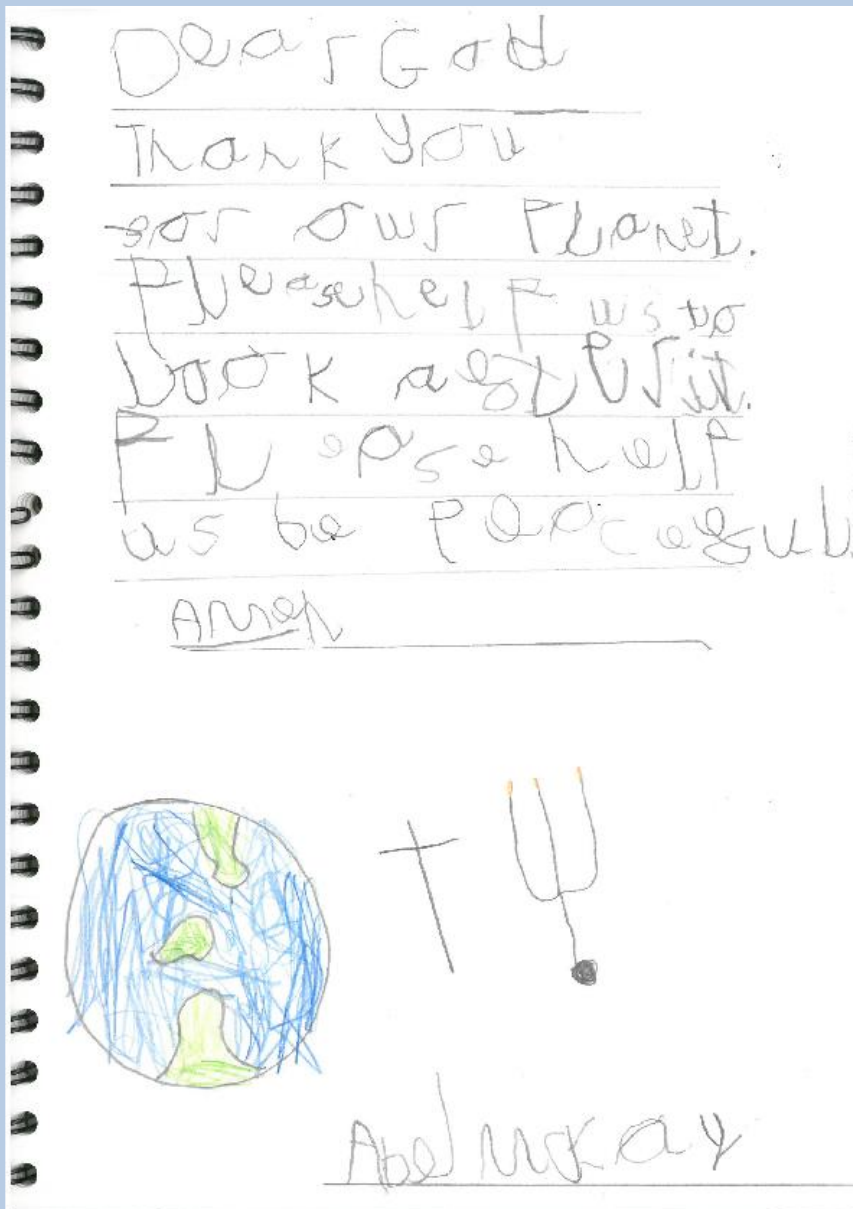 Dear God
Thank you
for our Planet.
Please help us to
Look after it.
Please help
us be Peaceful.
Amen
Abel McKay